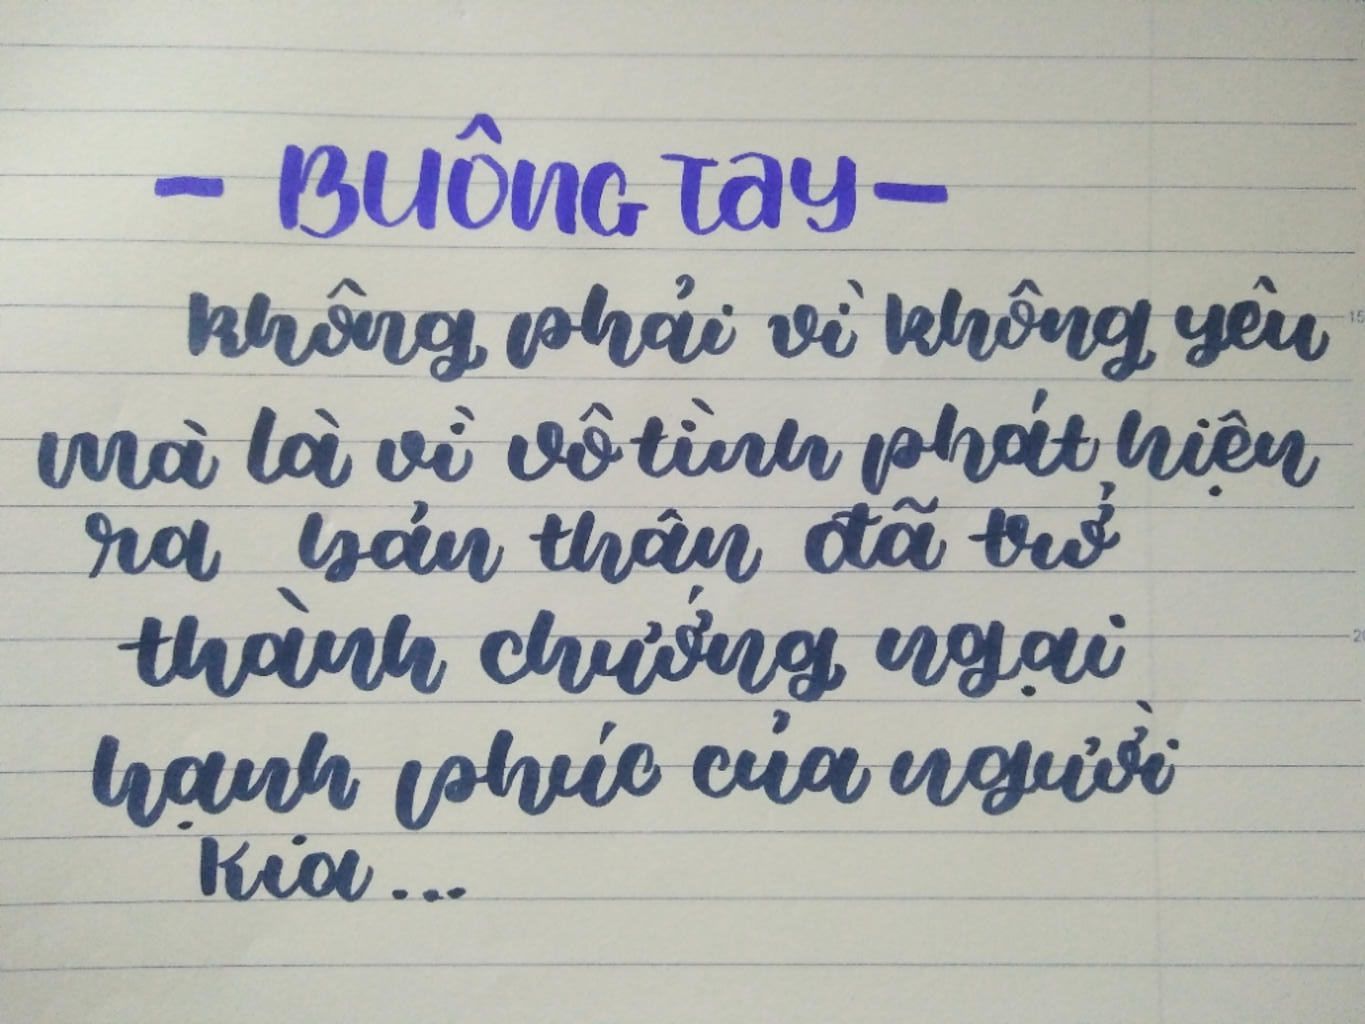 - BUÔNG TAY -
không phải vì không yêu
mà là vì vô tình phát hiện
ra bản thân đã trở
thành chướng ngại
hạnh phúc của người
kia...
15
2